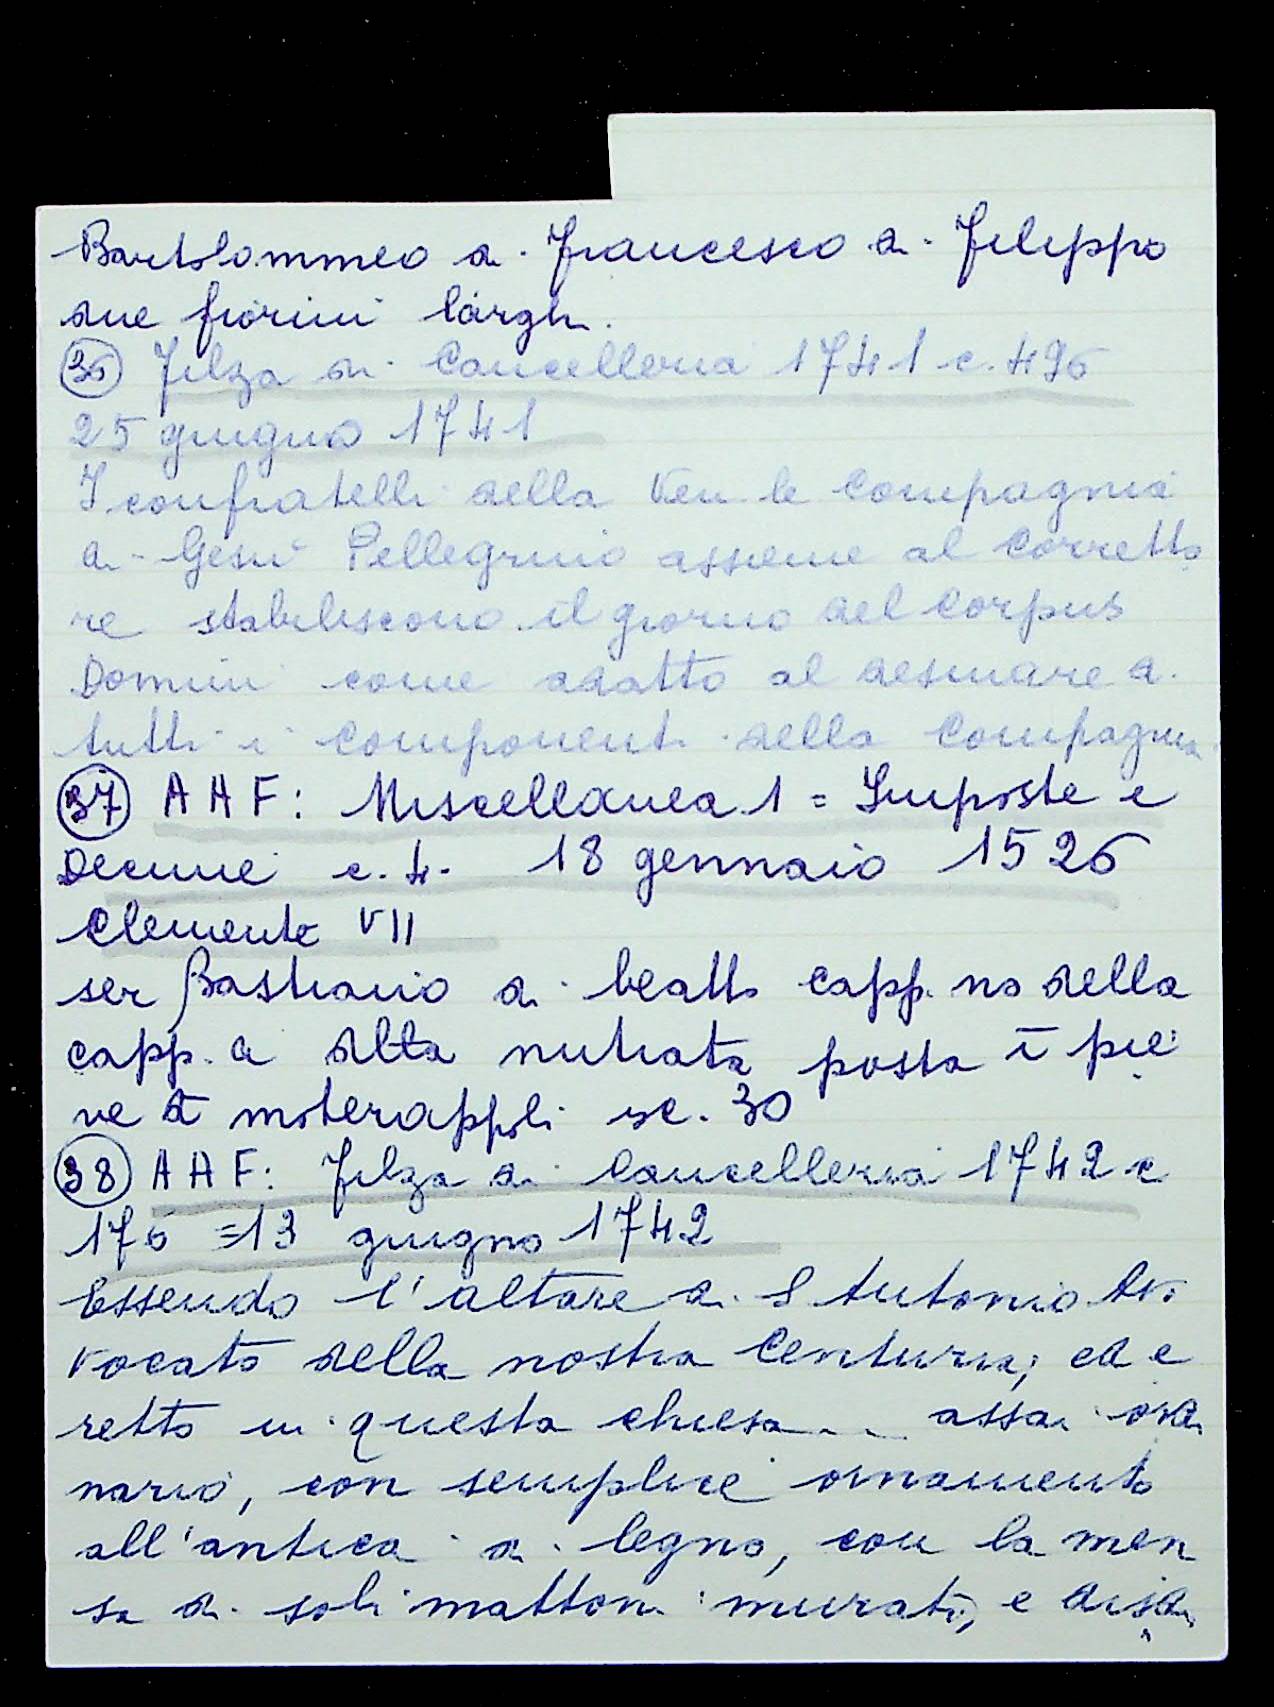 Bartolommeo di Francesco di Filippo
due fiorini larghi.
36 Filza di Cancelleria 1741 c. 496
25 giugno 1741
I confratelli della Ven.le Compagnia
di Gesù Pellegrino assieme al Corretto
re stabiliscono il giorno del Corpus
Domini come adatto al desinare di
tutti i componenti della Compagnia
37 AAF: Miscellanea 1 = Imposte e
Decime c. 4. 18 gennaio 1526
Clemente VII
ser Bastiano di beatto capp.no della
capp.a della nutiata posta ī pie
ve di moterappoli sc. 30
38 AAF: Filza di Cancelleria 1742 c
176 = 13 giugno 1742
Essendo l'altare di S Antonio Av
vocato della nostra Centuria; ed e
retto in questa chiesa... assai ordi
nario, con semplice ornamento
all'antica di legno, con la men
sa di soli mattoni murati, e disa